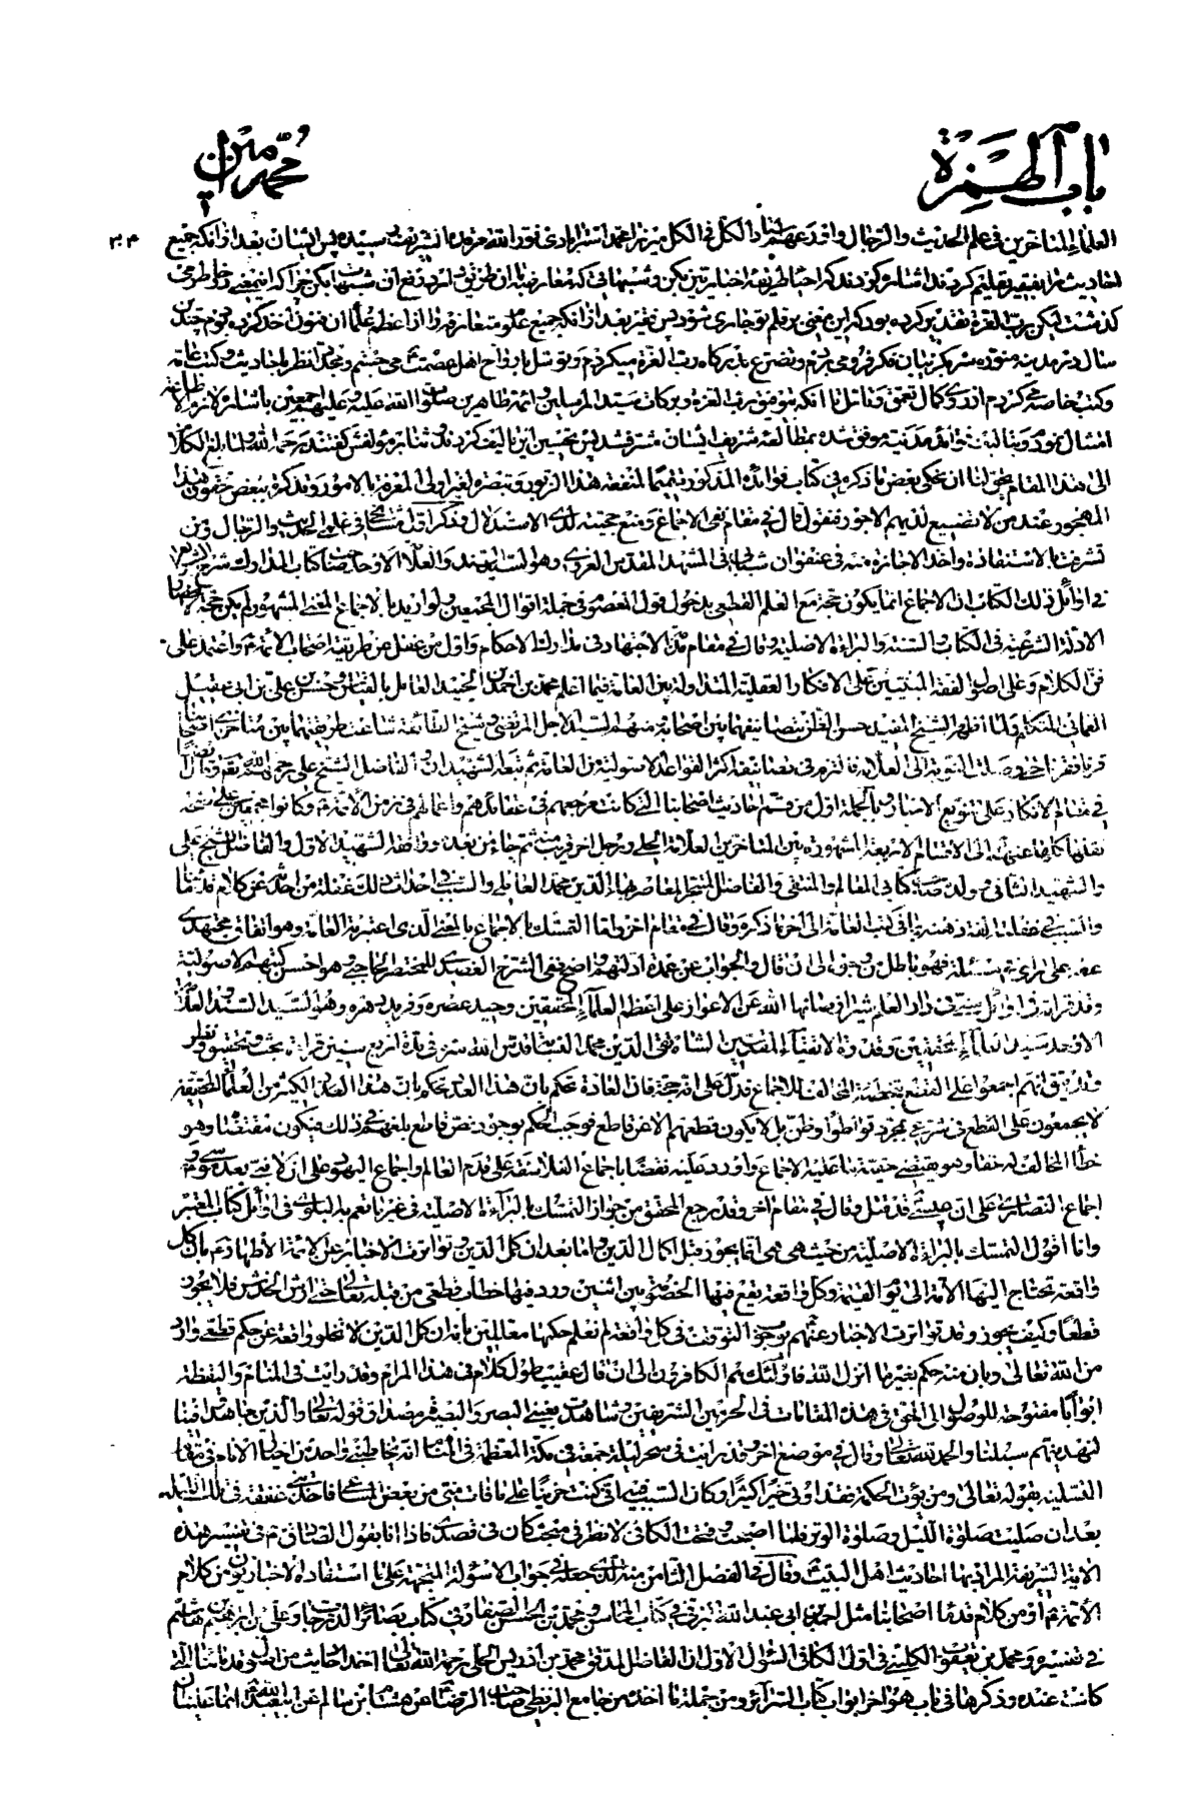 باب الهمزة
محمد امين
٣٠٤
العلماء المتأخرين في علم الحديث والرجال واورعهم استاد الكل في الكل ميرزا محمد استرابادى نور الله مرقده الشريف رسيده پس ايشان بعد از انكه جميع
احاديث را بفقير تعليم كردند اشاره كردند كه احيا طريقه اخباريين بكن و شبهاتى كه معارضه با ان طريق دارد دفع ان شبهات بكن چرا كه اين معنى در خاطر من
كذشت ليكن رب العزة تقدير كرده بود كه اين معنى بر قلم تو جارى شود پس فقير بعد از انكه جميع علوم متعارفه را از اعظم علما ان فنون اخذ كرده بودم چندين
سال در مدينه منوره سر بكريبان فكر فرو مى بردم و تضرع بدركاه رب العزة ميكردم و توسل بارواح اهل عصمت مى جستم و مجددا نظر باحاديث و كتب عامه
و كتب خاصه مى كردم از روى كمال تعمق و تأمل تا انكه بتوفيق رب العزة و بركات سيد المرسلين و ائمه طاهرين صلوات الله عليه وعليهم اجمعين باشاره لازم الاطاعة
امتثال نمودم و بتأليف فوائد مدنيه موفق شده بمطالعه شريف ايشان مشرف شد پس تحسين اين تاليف كردند و ثنا بر مؤلفش كفتند رحمه الله ولما بلغ الكلام
الى هذا المقام يحق لنا ان نحكى بعض ما ذكره في كتاب فوائده المذكور تتميما لمنفعة هذا الزبور وتبصرة لغير اولى المعرفة بالامور وتذكرة ببعض حقوق هذا
المهجور عند من لا تضييع لديهم الاجور فنقول قال في مقام نفى الاجماع ومنع حجيته لدى الاستدلال وذكر اول مشايخى في علمى الحديث والرجال ومن
تشرفت بالاستفادة واخذ الاجازة منه في عنفوان شبابى في المشهد المقدس الغروى وهو السيد السند والعلامة الاوحد صاحب كتاب المدارك شرح الشرايع
في اوائل ذلك الكتاب ان الاجماع انما يكون حجة مع العلم القطعى بدخول قول المعصوم في جملة اقوال المجمعين ولو اريد بالاجماع المعنى المشهور لم يكن حجة لانحصار
الادلة الشرعية في الكتاب والسنة والبراءة الاصلية وقال في مقام ذم الاجتهاد في مدارك الاحكام واول من غفل عن طريقة اصحاب الائمة واعتمد على
فن الكلام وعلى اصول الفقه المبنيين على الافكار العقلية المتداولة بين العامة فيما اعلم محمد بن احمد بن الجنيد العامل بالقياس وحسن بن على بن ابى عقيل
العمانى المتكلم ولما اظهر الشيخ المفيد حسن الظن بتصانيفهما بين اصحابه منهم السيد الاجل المرتضى وشيخ الطائفة شاعت طريقتهما بين متأخرى اصحابنا
قرنا فقرنا حتى وصلت النوبة الى العلامة فالتزم في تصانيفه اكثر القواعد الاصولية من العامة ثم تبعه الشهيدان والفاضل الشيخ على رحمهم الله تعالى وقال ايضا
في مقام الانكار على تنويع الاخبار وبالجملة اول من قسم احاديث اصحابنا التي كانت مرجعهم في عقائدهم واعمالهم في زمن الائمة وكانوا مجمعين على صحة
نقلها كلها عنهم الى الاقسام الاربعة المشهورة بين المتأخرين العلامة الحلى ورجل اخر قريب منه ثم جاء من بعده ووافقه الشهيد الاول والفاضل الشيخ على
والشهيد الثانى وولده صاحب كتابى المعالم والمنتقى والفاضل المتبحر المعاصر بهاء الدين محمد العاملى والسبب في احداث ذلك غفلة من احدثه عن كلام قدمائنا
والسبب في غفلته الفة ذهنه بما في كتب العامة الى آخر ما ذكره وقال في مقام اخر واما التمسك بالاجماع بالمعنى الذى اعتبرته العامة وهو اتفاق مجتهدى
عصر على راى في مسئلة فهو باطل من وجوه الى ان قال والجواب عن عمدة ادلتهم واضح ففى الشرح العضدى للمختصر الحاجبى وهو احسن كتبهم الاصولية
وقد قرأته في اوائل سنى في دار العلم شيراز صانها الله عن الاعواز على اعظم العلماء المحققين وحيد عصره وفريد دهره وهو السيد السند والعلامة
الاوحد سيد العلماء المحققين وقدوة الاتقياء المقدسين الشاه تقى الدين محمد النسابة قدس الله سره في مدة اربع سنين قرائة بحث وتحقيق ونظر
وتدقيق انهم اجمعوا على القطع بتخطئة المخالف للاجماع فدل على انه حجة فان العادة تحكم بان هذا العدد الكثير من العلماء المحققين
لا يجمعون على القطع في شرعى بمجرد تواطؤ او ظن بل لا يكون قطعهم الا عن قاطع فوجب الحكم بوجود نص قاطع بلغهم في ذلك فيكون مقتضاه وهو
خطأ المخالف له حقا وهو يقتضى حقية ما عليه الاجماع واورد عليه نقضا باجماع الفلاسفة على قدم العالم واجماع اليهود على ان لا نبى بعد موسى و
اجماع النصارى على ان عيسى قد قتل وقال في مقام آخر وقد رجع المحقق من جواز التمسك بالبرآءة الاصلية في غير ما تعم به البلوى في اوائل كتاب المعتبر
وانا اقول التمسك بالبراءة الاصلية من حيث هى هى انما يجوز قبل اكمال الدين واما بعد ان كمل الدين وتواترت الاخبار عن الائمة الاطهار بان كل
واقعة تحتاج اليها الامة الى يوم القيمة وكل واقعة يقع فيها الخصومة بين اثنين ورد فيها خطاب قطعى من قبله تعالى حتى ارش الخدش فلا يجوز
قطعا وكيف يجوز وقد تواترت الاخبار عنهم بوجوب التوقف في كل واقعة لم نعلم حكمها معللين بانه بعد ان كمل الدين لا تخلو واقعة عن حكم قطعى وارد
من الله تعالى وبان من حكم بغير ما انزل الله فاولئك هم الكافرون الى ان قال عقيب طول كلام في هذا المرام وقد رايت في المنام واليقظة
ابوابا مفتوحة للوصول الى الحق في هذه المقامات في الحرمين الشريفين وشاهدت بعينى البصر والبصيرة مصداق قوله تعالى والذين جاهدوا فينا
لنهدينهم سبلنا والحمد لله تعالى وقال في موضع اخر وقد رايت في سحر ليلة جمعة في مكة المعظمة في المنام انه يخاطبنى واحد من احباء الانام في مقام
التسلية بقوله تعالى ومن يؤت الحكمة فقد اوتى خيرا كثيرا وكان السبب فيه انى كنت حزينا على ما فات منى من بعض المساعى فاخذتنى غفقة في تلك الليلة
بعد ان صليت صلوة الليل وصلوة الوتر فلما اصبحت وفتحت الكافى لانظر في مبحث كان في قصدى فاذا انا بقول الصادق في تفسير هذه
الاية الشريفة المراد بها احاديث اهل البيت وقال في الفصل الثامن منه الذى جعله في جواب الاسئولة المتجهة على ما استفاده الاخباريون من كلام
الائمة او من كلام قدماء اصحابنا مثل احمد بن ابى عبد الله البرقى في كتاب المحاسن ومحمد بن الحسن الصفار في كتاب بصائر الدرجات وعلى بن ابراهيم بن هاشم
في تفسيره ومحمد بن يعقوب الكلينى في اول الكافى السؤال الاول ان الفاضل المدقق محمد بن ادريس الحلى رحمة الله تعالى اخذ احاديث من اصول قدمائنا التي
كانت عنده وذكرها في باب هو اخر ابواب كتاب السرائر ومن جملة ما اخذه من جامع البزنطى صاحب الرضا عن هشام بن سالم عن ابى عبد الله انما علينا ان